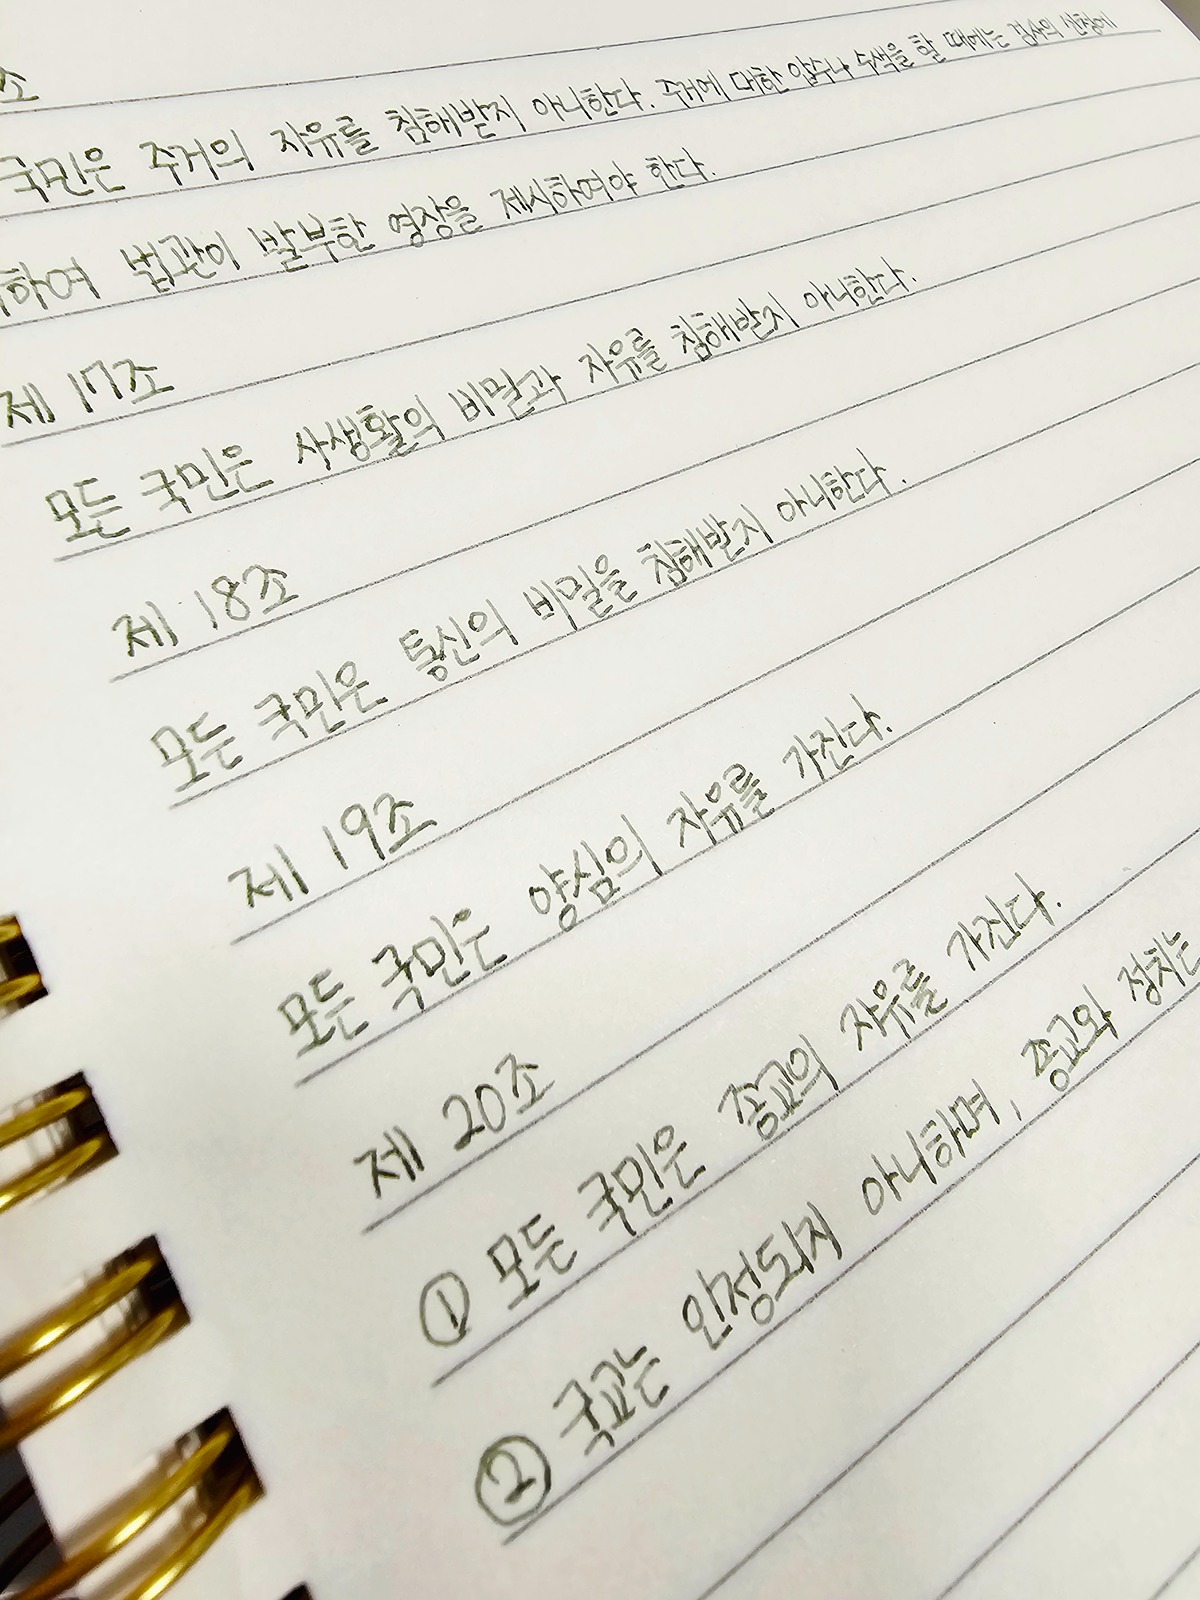 조
국민은 주거의 자유를 침해받지 아니한다. 주거에 대한 압수나 수색을 할 때에는 검사의 신청에
하여 법관이 발부한 영장을 제시하여야 한다.
제 17조
모든 국민은 사생활의 비밀과 자유를 침해받지 아니한다.
제 18조
모든 국민은 통신의 비밀을 침해받지 아니한다.
제 19조
모든 국민은 양심의 자유를 가진다.
제 20조
① 모든 국민은 종교의 자유를 가진다.
② 국교는 인정되지 아니하며, 종교와 정치는